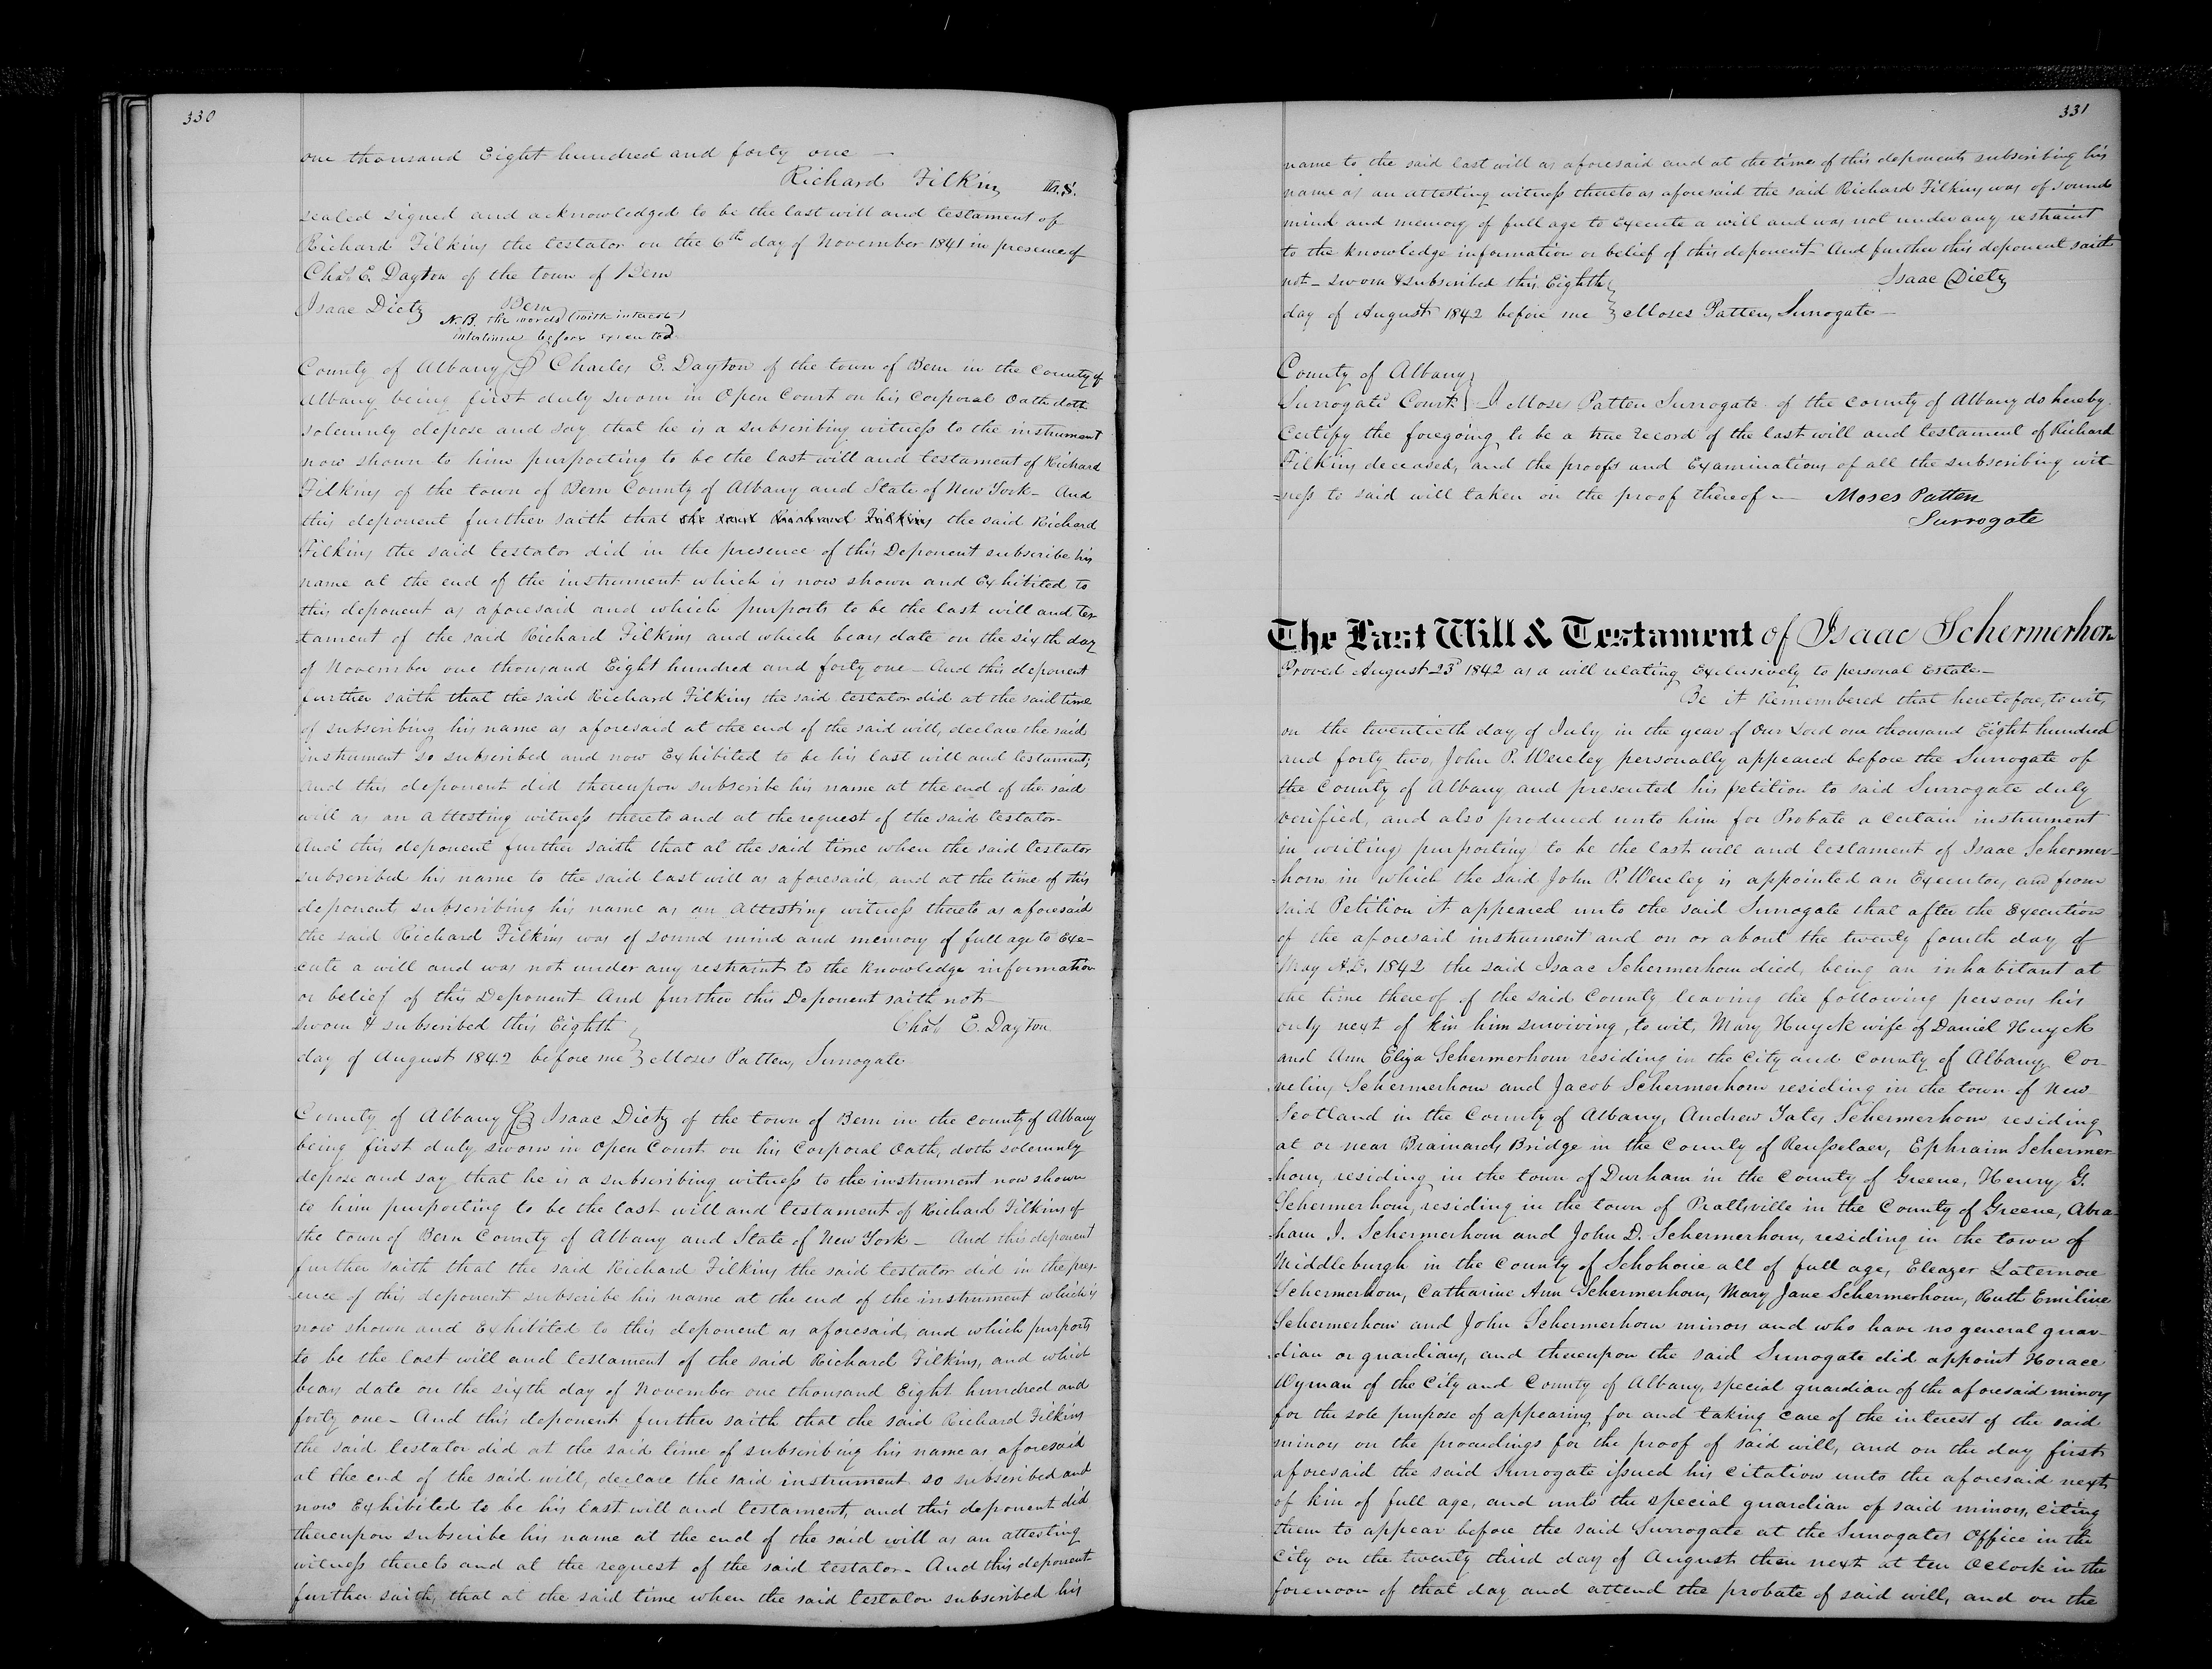 330
one thousand Eight hundred and forty one —
Richard Filkins L.S.
sealed signed and acknowledged to be the last will and testament of
Richard Filkins the testator on the 6th day of November 1841 in presence of
Chas E. Dayton of the town of Bern
Isaac Dietz Bern
N.B. the words (with interest)
interlined before executed
County of Albany SS Charles E. Dayton of the town of Bern in the County of
Albany being first duly sworn in Open Court on his Corporal Oath doth
solemnly depose and say that he is a subscribing witness to the instrument
now shown to him purporting to be the last will and testament of Richard
Filkins of the town of Bern County of Albany and State of New York – And
this deponent further saith that the said Richard Filkins the said Richard
Filkins the said testator did in the presence of this Deponent subscribe his
name at the end of the instrument which is now shown and Exhibited to
this deponent as aforesaid and which purports to be the last will and tes-
tament of the said Richard Filkins and which bears date on the sixth day
of November one thousand Eight hundred and forty one – And this deponent
further saith that the said Richard Filkins the said testator did at the said time
of subscribing his name as aforesaid at the end of the said will, declare the said
instrument so subscribed and now Exhibited to be his last will and testament;
And this deponent did thereupon subscribe his name at the end of the said
will as an attesting witness thereto and at the request of the said testator–
And this deponent further saith that at the said time when the said testator
subscribed his name to the said last will as aforesaid, and at the time of this
deponents subscribing his name as an attesting witness thereto as aforesaid
the said Richard Filkins was of sound mind and memory of full age to Exe-
cute a will and was not under any restraint to the knowledge information
or belief of this Deponent – And further this Deponent saith not –
Sworn & subscribed this Eighth Chas E. Dayton
day of August 1842 before me } Moses Patten, Surrogate
County of Albany SS Isaac Dietz of the town of Bern in the county of Albany
being first duly sworn in Open Court on his Corporal Oath, doth solemnly
depose and say that he is a subscribing witness to the instrument now shown
to him purporting to be the last will and testament of Richard Filkins of
the town of Bern County of Albany and State of New York – And this deponent
further saith that the said Richard Filkins the said testator did in the pres-
ence of this deponent subscribe his name at the end of the instrument which is
now shown and Exhibited to this deponent as aforesaid, and which purports
to be the last will and testament of the said Richard Filkins, and which
bears date on the sixth day of November one thousand Eight hundred and
forty one – And this deponent further saith that the said Richard Filkins
the said testator did at the said time of subscribing his name as aforesaid
at the end of the said will, declare the said instrument so subscribed and
now Exhibited to be his last will and testament, and this deponent did
thereupon subscribe his name at the end of the said will as an attesting
witness thereto and at the request of the said testator – And this deponent
further saith, that at the said time when the said testator subscribed his
331
name to the said last will as aforesaid and at the time of this deponents subscribing his
name as an attesting witness thereto as aforesaid the said Richard Filkins was of sound
mind and memory of full age to Execute a will and was not under any restraint
to the knowledge information or belief of this deponent – And further this deponent saith
not – Sworn & subscribed this Eighth Isaac Dietz
day of August 1842 before me } Moses Patten, Surrogate –
County of Albany
Surrogate Court } I Moses Patten Surrogate of the county of Albany do hereby
Certify the foregoing to be a true record of the last will and testament of Richard
Filkins deceased, and the proofs and Examinations of all the subscribing wit-
=ness to said will taken on the proof thereof – Moses Patten
Surrogate
The Last Will & Testament of Isaac Schermerhorn
Proved August 23d 1842 as a will relating Exclusively to personal Estate –
Be it Remembered that heretofore, to wit,
on the twentieth day of July in the year of Our Lord one thousand Eight hundred
and forty two, John P. Wereley personally appeared before the Surrogate of
the County of Albany and presented his petition to said Surrogate duly
verified, and also produced unto him for Probate a certain instrument
in writing purporting to be the last will and testament of Isaac Schermer-
=horn in which the said John P. Wereley is appointed an Executor, and from
said Petition it appeared unto the said Surrogate that after the Execution
of the aforesaid instrument and on or about the twenty fourth day of
May A.D. 1842 the said Isaac Schermerhorn died, being an inhabitant at
the time thereof of the said County leaving the following persons his
only next of kin him surviving, to wit, Mary Huyck wife of Daniel Huyck
and Ann Eliza Schermerhorn residing in the City and County of Albany, Cor-
nelius Schermerhorn and Jacob Schermerhorn residing in the town of New
Scotland in the County of Albany, Andrew Yates Schermerhorn residing
at or near Brainards Bridge in the County of Rensselaer, Ephraim Schermer-
=horn, residing in the town of Durham in the County of Greene, Henry G.
Schermerhorn, residing in the town of Prattsville in the County of Greene, Abra-
ham I. Schermerhorn and John D. Schermerhorn, residing in the town of
Middleburgh in the County of Schoharie all of full age, Eleazer Latemore
Schermerhorn, Catharine Ann Schermerhorn, Mary Jane Schermerhorn, Ruth Emiline
Schermerhorn and John Schermerhorn minors and who have no general guar-
dian or guardians, and thereupon the said Surrogate did appoint Horace
Wyman of the City and County of Albany, special guardian of the aforesaid minors
for the sole purpose of appearing for and taking care of the interest of the said
minors on the proceedings for the proof of said will, and on the day first
aforesaid the said Surrogate issued his citation unto the aforesaid next
of kin of full age, and unto the special guardian of said minors, citing
them to appear before the said Surrogate at the Surrogates Office in the
City on the twenty third day of August then next at ten Oclock in the
forenoon of that day and attend the probate of said will, and on the